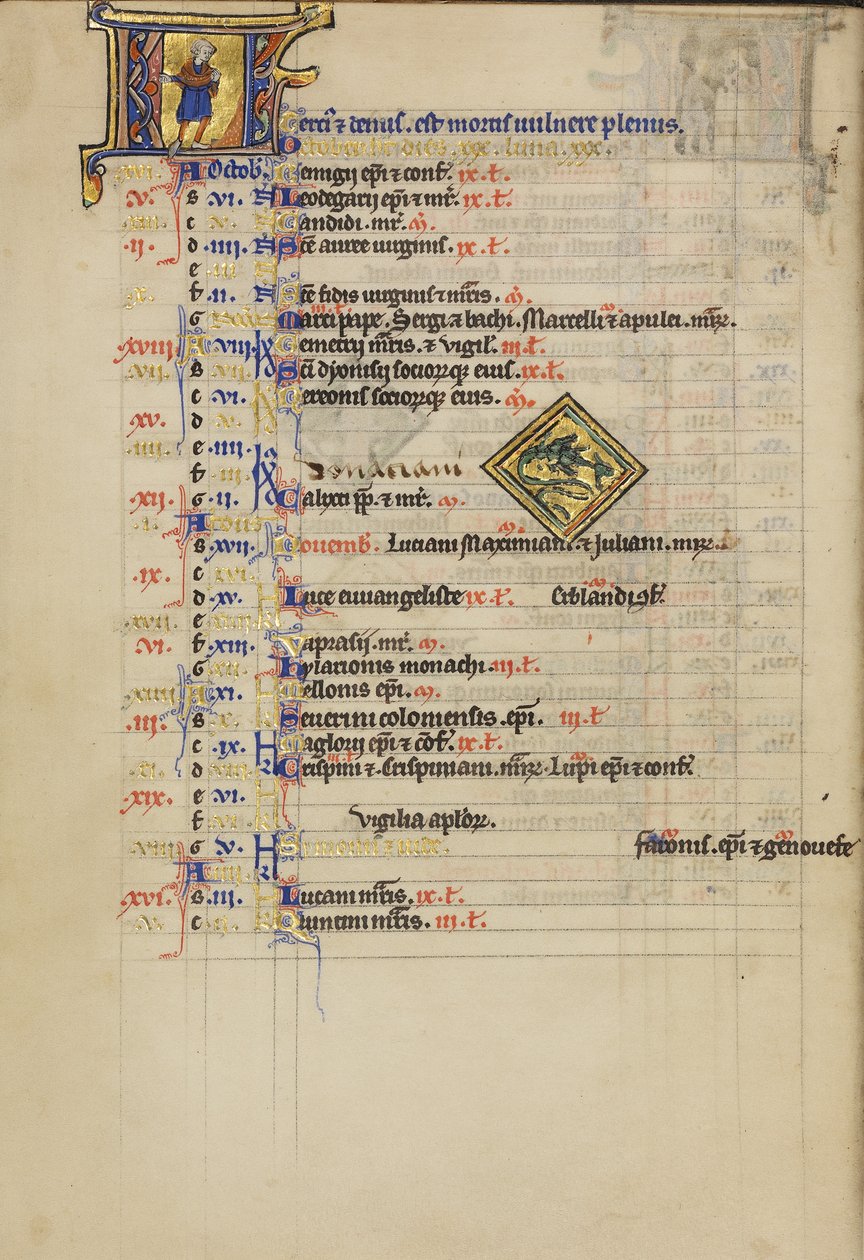 Terci9 ⁊ denus. est mortis uulnere plenus.
October ht dies .xxx. luna .xxx.
xvi. A Octob. Remigii ep̄i ⁊ conf. ix. l.
.v. B .vi. N Leodegarii ep̄i ⁊ mr̄. ix. l.
xiii. c .v. N Candidi. mr̄. m̄.
.ii. d .iiii. N Sc̄e auree uirginis. ix. l.
e .iii. N
.x. f .ii. N Sc̄e fidis uirginis ⁊ mr̄is. m̄.
G Marci pape. Sergi ⁊ bachi. Marcelli ⁊ apulei. mr̄ꝝ.
xviii A .viii. Demetrii mr̄is. ⁊ vigil'. iii. l.
.vii. B .vii. Sc̄i dyonisii socioꝝqꝫ eius. ix. l.
c .vi. Cereonis socioꝝqꝫ eius. m̄.
.xv. d .v.
.iiii. e .iiii.
f .iii. Donatiani
.xii. G .ii. Calixti pp̄. ⁊ mr̄. m̄.
.i. A Idus
B .xvii. Nouemb. Luciani Maximiani ⁊ Juliani. mr̄ꝝ.
.ix. c .xvi.
d .xv. Luce euuangeliste ix. l. Erblandi 9f.
xvii e
.vi. f .xiii. Caprasii. mr̄. m̄.
G .xii. Hylarionis monachi. iii. l.
xiiii A .xi. Mellonis ep̄i. m̄.
.iii. B .x. Seuerini coloniensis .ep̄i. iii. l
c .ix. K Maglorii ep̄i ⁊ cōf. ix. l.
.xi. d .viii. Kl Crispini ⁊ Crispiniani. mr̄ꝝ. Lupi ep̄i ⁊ conf.
.xix. e .vi.
f .vi. Vigilia apl'oꝝ.
.viii. G .v. Symonis ⁊ iude. faronis. ep̄i ⁊ genouefe
A .iiii.
.xvi. B .iii. Lucani mr̄is. ix. l.
.v. c .ii. Quintini mr̄is. iii. l.